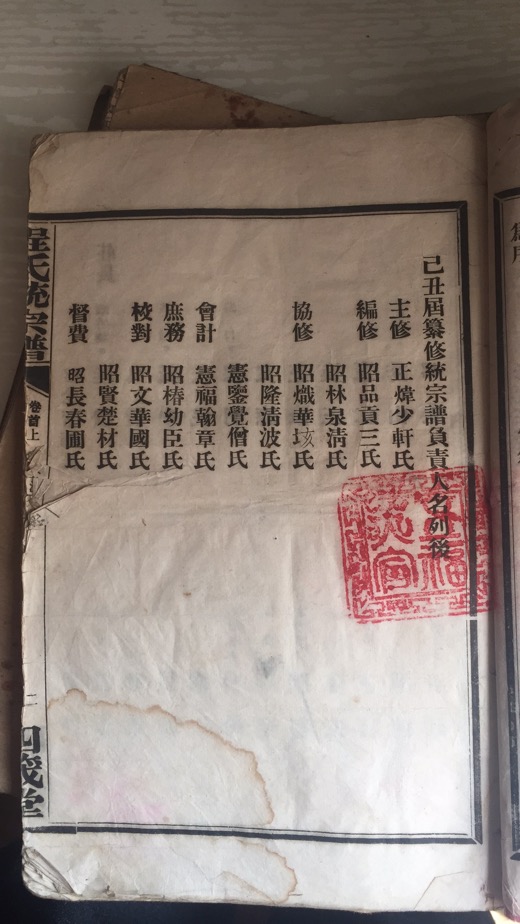 己丑屆纂修統宗譜負責人名列後
主修 正煒少軒氏
編修 昭品貢三氏
昭林泉清氏
協修 昭熾華垓氏
昭隆清波氏
憲鑒覺僧氏
會計 憲福翰章氏
庶務 昭椿幼臣氏
校對 昭文華國氏
昭賢楚材氏
督費 昭長春圃氏
程氏統宗譜
卷首上
二
四箴堂